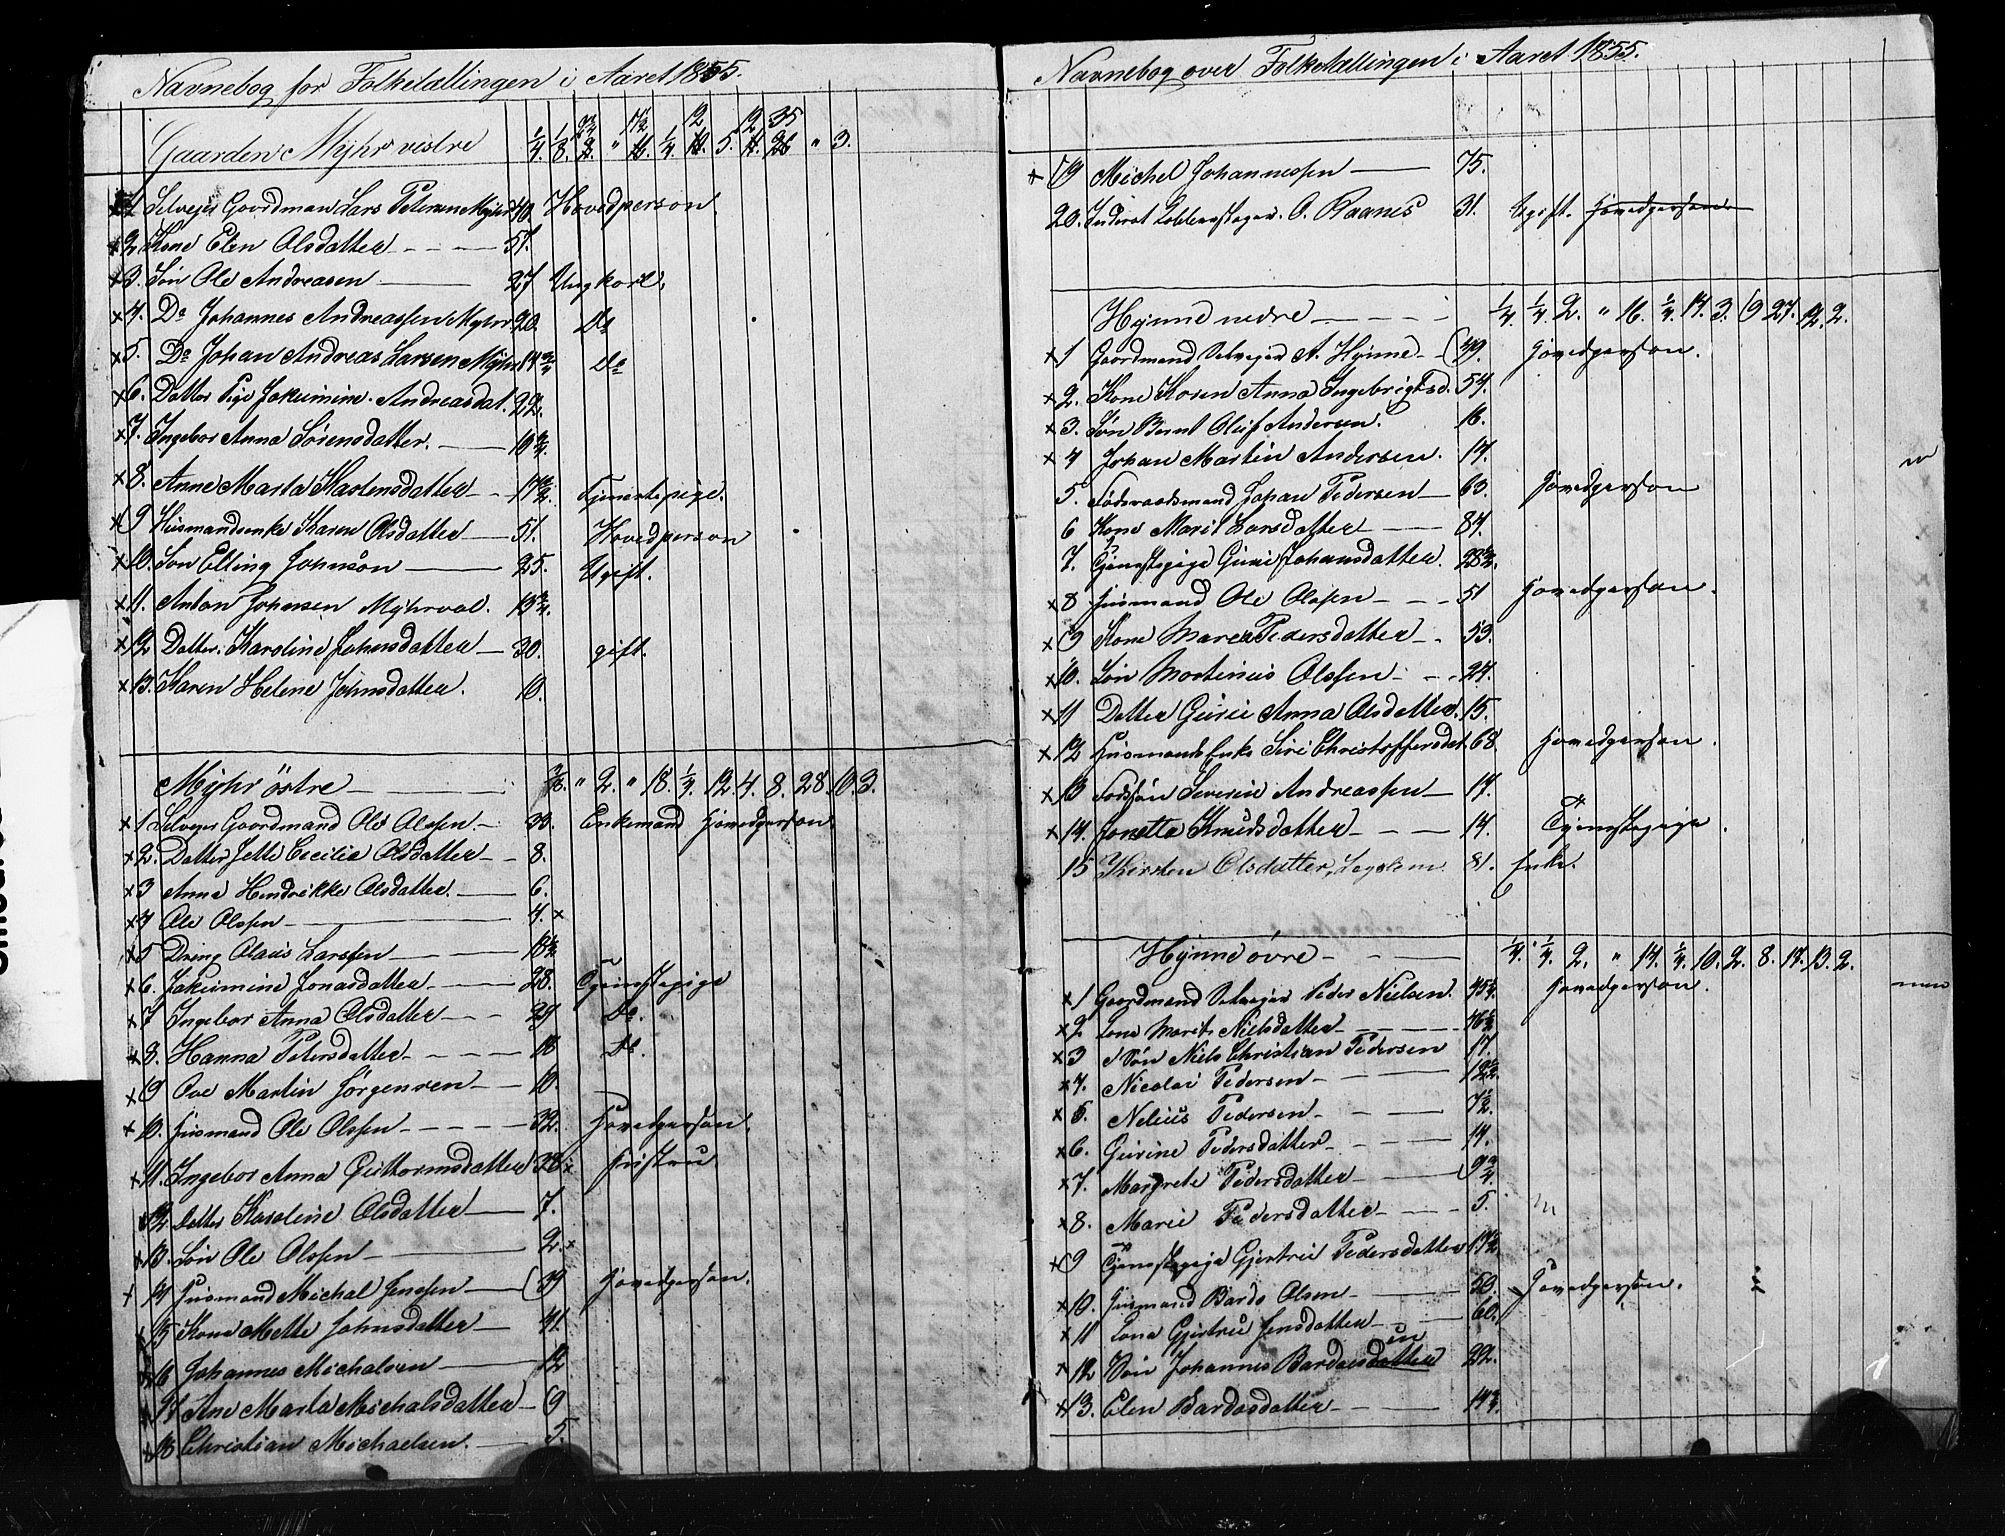 Navnebog for Folketællingen i Aaret 1855.
Gaarden Myhr vestre 1/4. 1/8. " 1/4 5. " 3.
1 Selvejer Goordman Lars Petersen Myhr 40. Hovedperson.
2 Kone Elen Olsdatter 51.
3. Søn Ole Andreasen 27 Ungkarl.
4. Do Johannes Andreassen Myhr 20. Do
5. Do Johan Andreas Larsen Myhr 14 3/4 Do
6. Datter Pige Jakumine Andreasdat. 22.
7. Ingebor Anna Sørensdatter. 10 3/4.
8. Anne Marta Mortensdatter 17 1/2. Tjenestepige.
9 Husmandsenke Karen Olsdatter 51. Hovedperson
10. Søn Elling Johnsøn 25. Ugift.
11. Anton Johnsen Myhrvol. 13 3/4.
12 Datter Karoline Johnsdatter 30. gift.
13. Karen Helene Johnsdatter. 10.
Myhr östre " 2. " 18. 1/4. 12. 4. 8. 28. 10. 3.
1 Selvejer Goordmand Ole Olssen. 33. Enkemand Hovedperson.
2. Datter Jette Cecilia Olsdatter 8.
3 Anna Hendrikke Olsdatter. 6.
4 Ole Olssen 4. x
5 Dreng Olaus Larssen 18 1/2
6. Jakumine Jonasdatter 28. Tjenestepige
7 Ingebor Anna Olsdatter 29 Do.
8. Hanna Petersdatter 18 Do.
9 Ove Martin Jørgensen 10.
10. Husmand Ole Olssen 32. Hovedperson.
11. Ingebor Anna Guttormsdatter 38 x Hustru
12 Datter Karoline Olsdatter 7.
13. Søn Ole Olssen 2. x
14 Husmand Michal Jenssen 39 Hovedperson.
15 Kone Mette Johnsdatter 41.
16 Johannes Michalsen 12
17 Ane Marta Michalsdatter 9
18 Christian Michaelsen. 5.
Navnebog over Folketællingen i Aaret 1855.
19 Michel Johannessen 75.
20. O. Raanes 31. Ugift. Hovedperson.
Hynne nedre 1/4. 1/4. 2. " 16. 1/4. 14. 3. 9 27. 12. 2.
1 Goordmand Selvejer A. Hynne 49. Hovedperson.
2. Kone Karen Anna Ingebrigtsd. 54.
3. Søn Bernt Oluf Andersen. 16.
4 Johan Martin Andersen. 14.
5. Føderaadsmand Johan Pedersen 63. Hovedperson
6 Kone Marit Larsdatter 84.
7. Tjenestepige Guri Johansdatter. 28 1/2.
8 Husmand Ole Olssen 51 Hovedperson.
9 Kone Maren Pedersdatter 53.
10. Søn Martinus Olssen 24.
11 Datter Gurie Anna Olsdatter. 15.
12 Husmands Enke Siri Christoffersdat. 68 Hovedperson.
13 Søn Severin Andreassen 14.
14. Jonetta Knudsdatter 14. Tjenestepige.
15 Kirsten Olsdatter, 81. Enke.
Hynne övre 1/4. 1/4. 2. " 14. 1/4. 10. 2. 8. 17. 13. 2.
1 Goordmand Selvejer Peder Nielsen. 45 1/4. Hovedperson.
2 Kone Marit Nielsdatter 46 1/2
3 Søn Niels Christian Pedersen 17.
4. Nicolai Pedersen 12 1/2.
5. Nelius Pedersen 7 1/2.
6. Gurine Pedersdatter 14.
7. Margrete Pedersdatter 9 3/4
8. Marie Pedersdatter 5.
9 Tjenestepige Gjertrue Pedersdatter 17 1/2
10. Husmand Bardo Olsen 50. Hovedperson.
11 Kona Gjertrue Jensdatter 60.
12 Søn Johannes Bardosen 22.
13. Elen Bardosdatter 14 3/4.